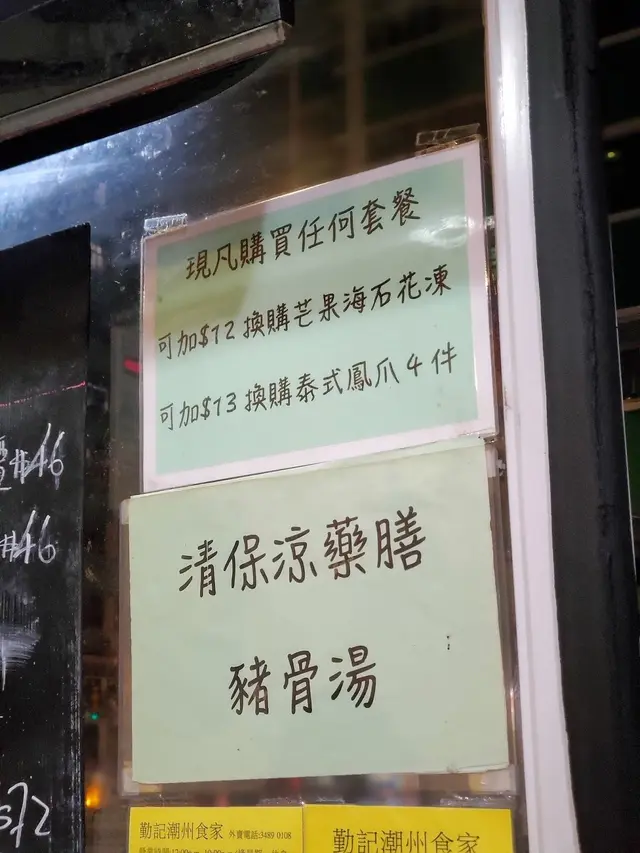 現凡購買任何套餐
可加$12 換購芒果海石花凍
可加$13 換購泰式鳳爪 4 件
清保涼藥膳
豬骨湯
$46
$46
$72
勤記潮州食家 外賣電話:3489 0108
勤記潮州食家